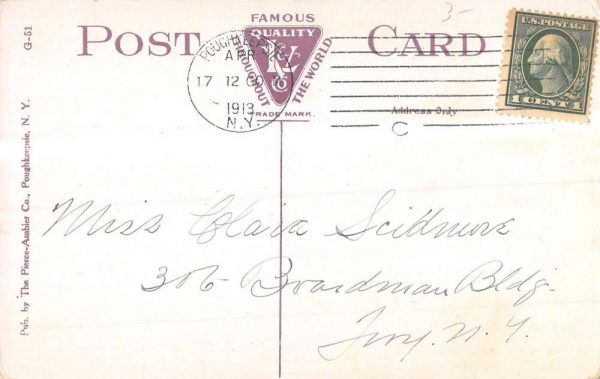 G-51
3-
POST CARD
FAMOUS
QUALITY
THROUGHOUT THE WORLD
TRADE MARK.
POUGHKEEPSIE
APR
17 12 30 P
1913
N.Y.
C
U.S. POSTAGE
1 CENT 1
Address Only
Pub. by The Pierce-Ambler Co., Poughkeepsie, N. Y.
Miss Clara Scidmore
306 Boardman Bldg.
Troy. N. Y.